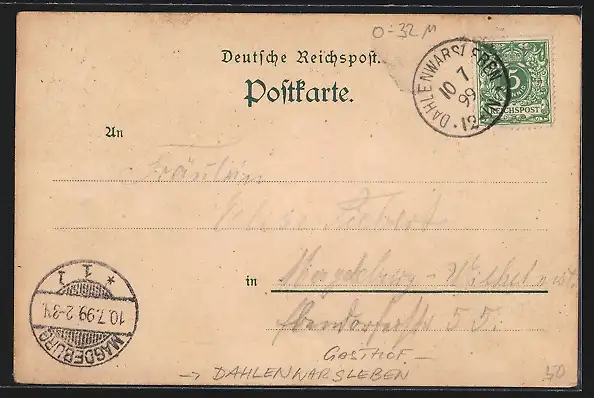 O-32 M
Deutsche Reichspost.
Postkarte.
DAHLENWARSLEBEN
10 7
99
12
5
REICHSPOST
An
Fräulein
in Magdeburg-Wilhelmst.
55.
* 1 1
10.7.99. 2-3 N
MAGDEBURG
GASTHOF –
→ DAHLENWARSLEBEN
50